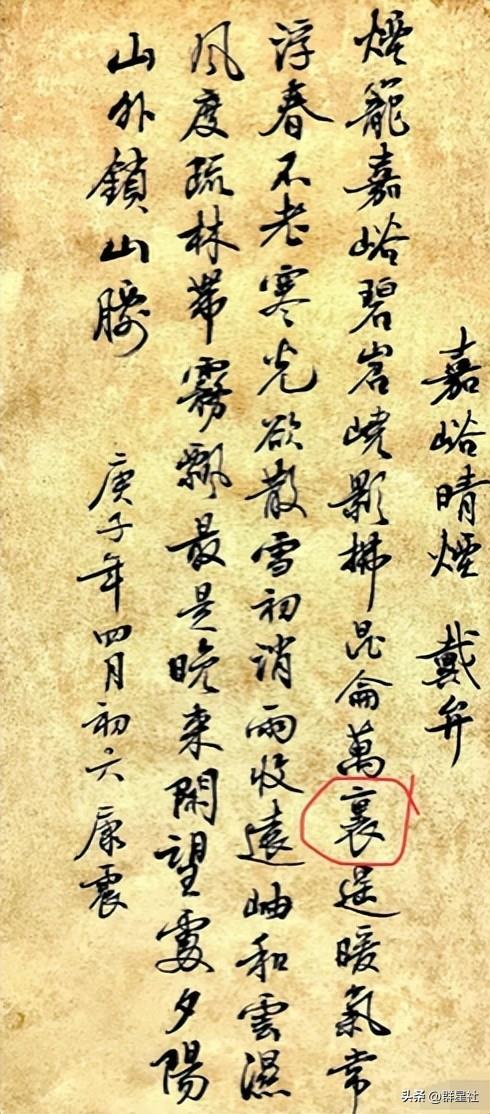 嘉峪晴煙 戴弁
煙籠嘉峪碧岧嶢影拂昆侖萬裏遥暖氣常
浮春不老寒光欲散雪初消雨收遠岫和雲濕
風度疏林帶霧飄最是晚來閑望處夕陽
山外鎖山腰 庚子年四月初六 康震
头条 @群星社